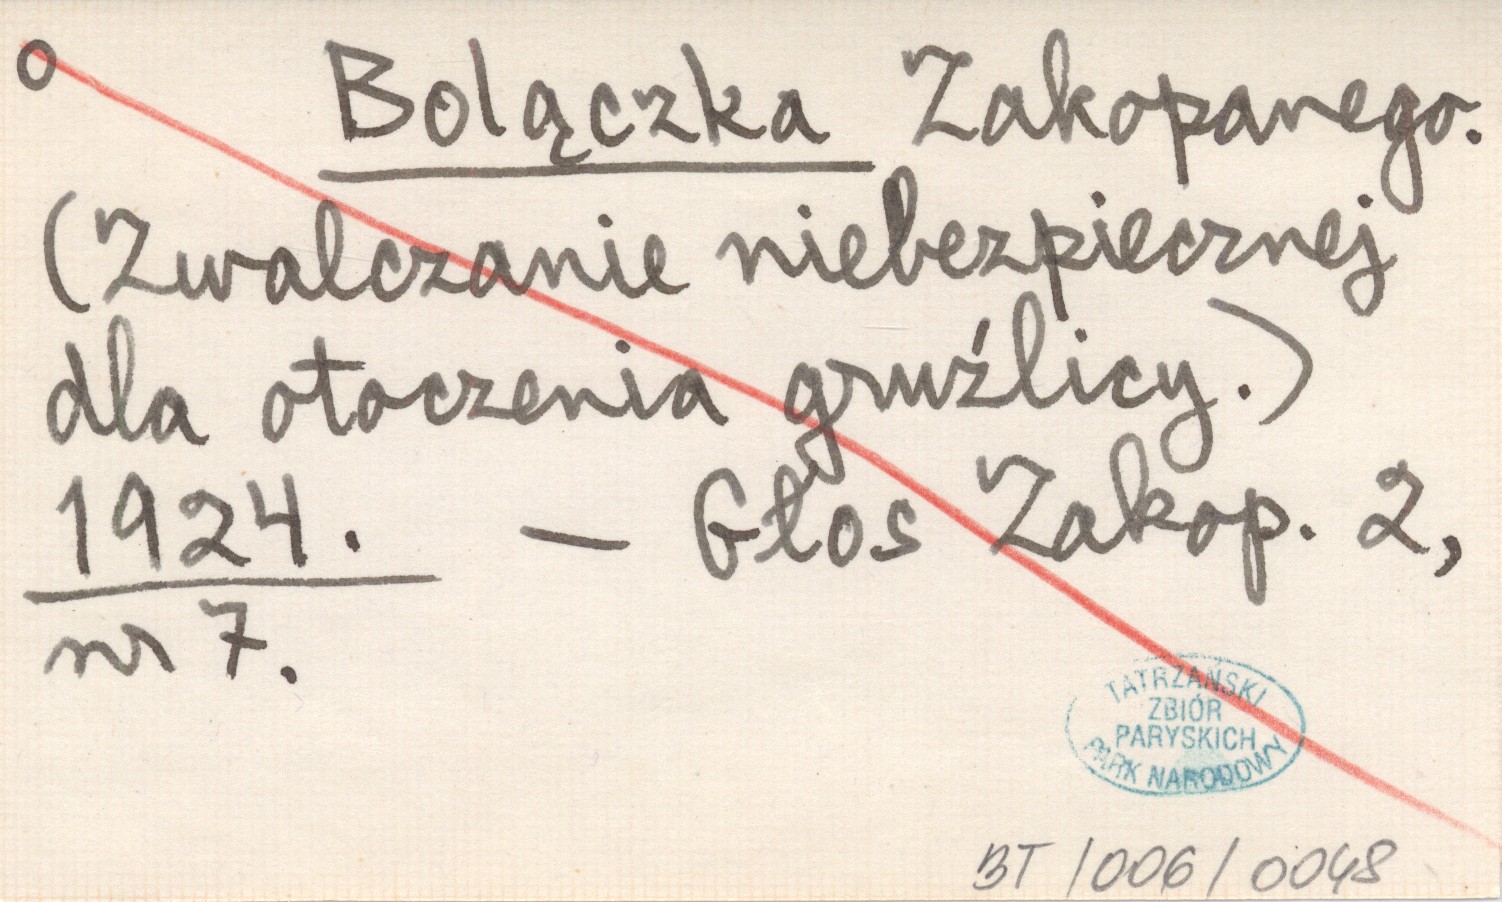 o Bolączka Zakopanego.
(Zwalczanie niebezpiecznej
dla otoczenia gruźlicy.)
1924. — Głos Zakop. 2,
nr 7.
TATRZAŃSKI
ZBIÓR
PARYSKICH
PARK NARODOWY
BT/006/0048